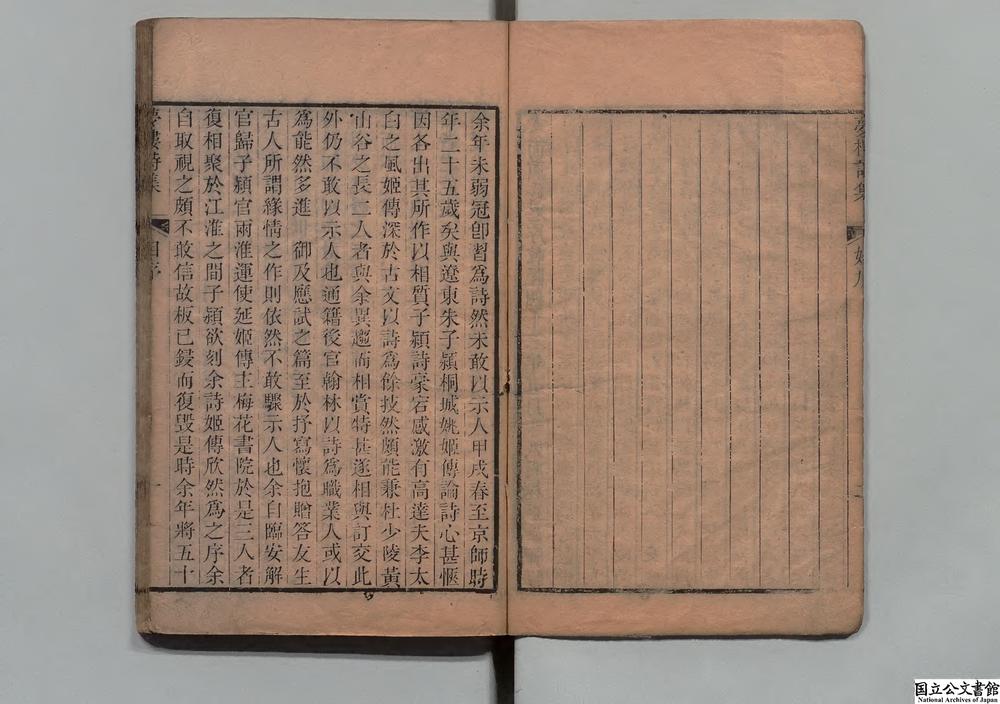 夢樓詩集
余年未弱冠卽習爲詩然未敢以示人甲戌春至京師時
年二十五歲矣與遼東朱子潁桐城姚姬傳論詩心甚愜
因各出其所作以相質子潁詩豪宕感激有高達夫李太
白之風姬傳深於古文以詩爲餘技然頗能兼杜少陵黃
山谷之長二人者與余異趣而相賞特甚遂相與訂交此
外仍不敢以示人也通籍後官翰林以詩爲職業人或以
爲能然多進 御及應試之篇至於抒寫懷抱贈答友生
古人所謂緣情之作則依然不敢驟示人也余自臨安解
官歸子潁官兩淮運使延姬傳主梅花書院於是三人者
復相聚於江淮之間子潁欲刻余詩姬傳欣然爲之序余
自取視之頗不敢信故板已鋟而復毀是時余年將五十
夢樓詩集 自序 一
国立公文書館
National Archives of Japan